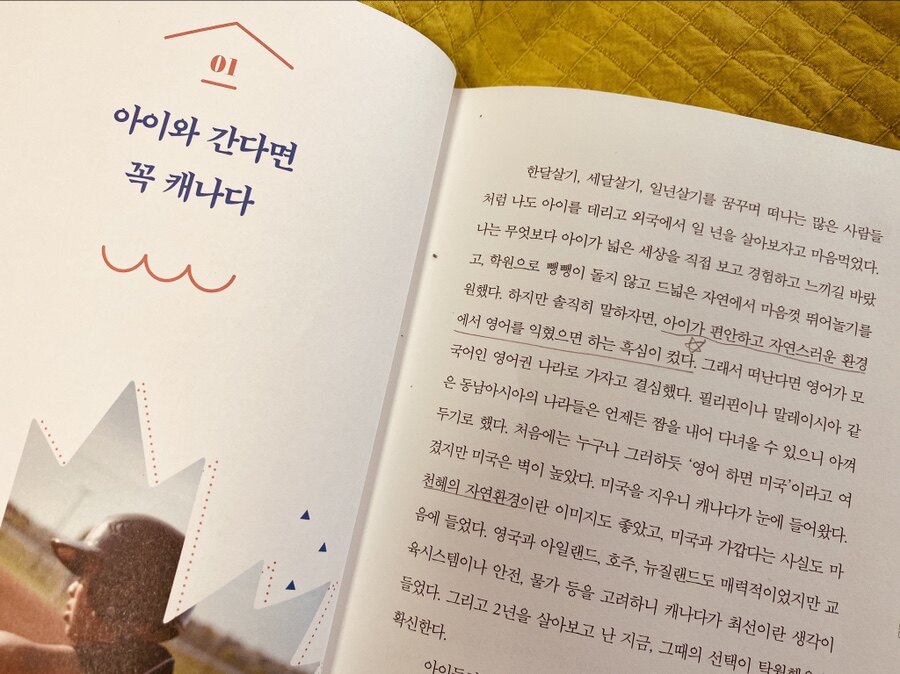 01
아이와 간다면
꼭 캐나다
한달살기, 세달살기, 일년살기를 꿈꾸며 떠나는 많은 사람들
처럼 나도 아이를 데리고 외국에서 일 년을 살아보자고 마음먹었다.
나는 무엇보다 아이가 넓은 세상을 직접 보고 경험하고 느끼길 바랐
고, 학원으로 뺑뺑이 돌지 않고 드넓은 자연에서 마음껏 뛰어놀기를
원했다. 하지만 솔직히 말하자면, 아이가 편안하고 자연스러운 환경
에서 영어를 익혔으면 하는 흑심이 컸다. 그래서 떠난다면 영어가 모
국어인 영어권 나라로 가자고 결심했다. 필리핀이나 말레이시아 같
은 동남아시아의 나라들은 언제든 짬을 내어 다녀올 수 있으니 아껴
두기로 했다. 처음에는 누구나 그러하듯 ‘영어 하면 미국’이라고 여
겼지만 미국은 벽이 높았다. 미국을 지우니 캐나다가 눈에 들어왔다.
천혜의 자연환경이란 이미지도 좋았고, 미국과 가깝다는 사실도 마
음에 들었다. 영국과 아일랜드, 호주, 뉴질랜드도 매력적이었지만 교
육시스템이나 안전, 물가 등을 고려하니 캐나다가 최선이란 생각이
들었다. 그리고 2년을 살아보고 난 지금, 그때의 선택이
확신한다.